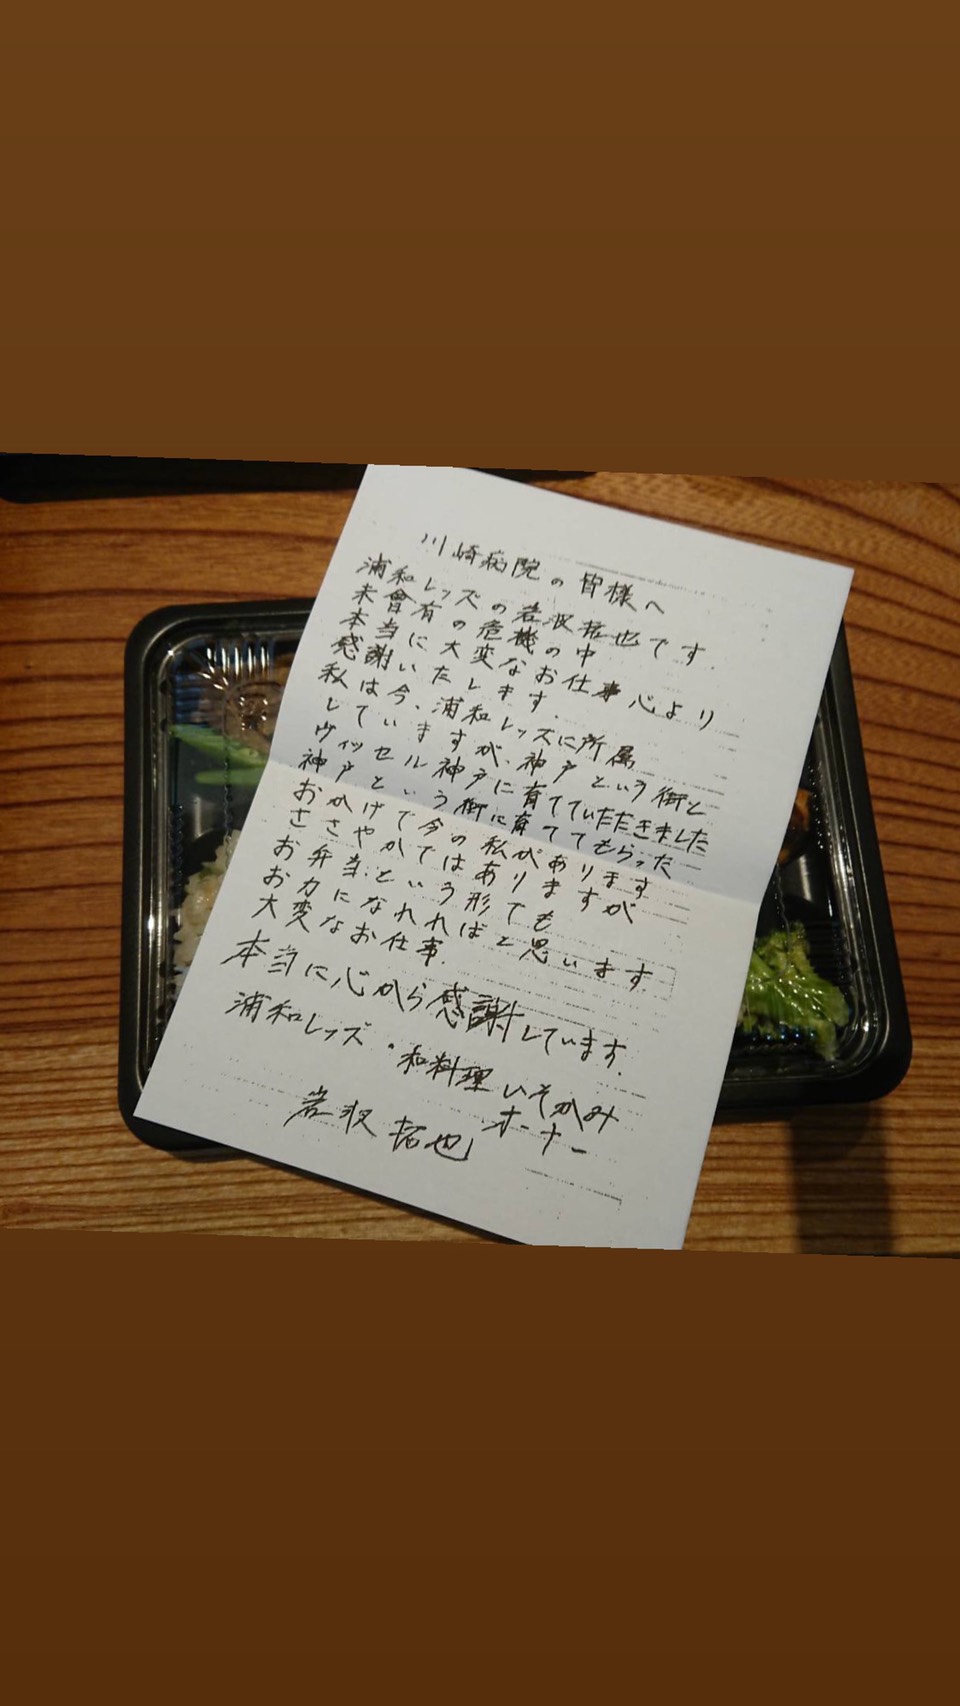 川崎病院の皆様へ
浦和レッズの岩波拓也です.
未會有の危機の中
本当に大変なお仕事心より
感謝いたします.
私は今、浦和レッズに所属
していますが、神戸という街と
ヴィッセル神戸に育てていただきました
神戸という街に育ててもらった
おかげで今の私があります
ささやかではありますが
お弁当という形でも
お力になれればと思います.
大変なお仕事.
本当に心から感謝しています.
浦和レッズ・和料理いそがみ
オーナー
岩波拓也